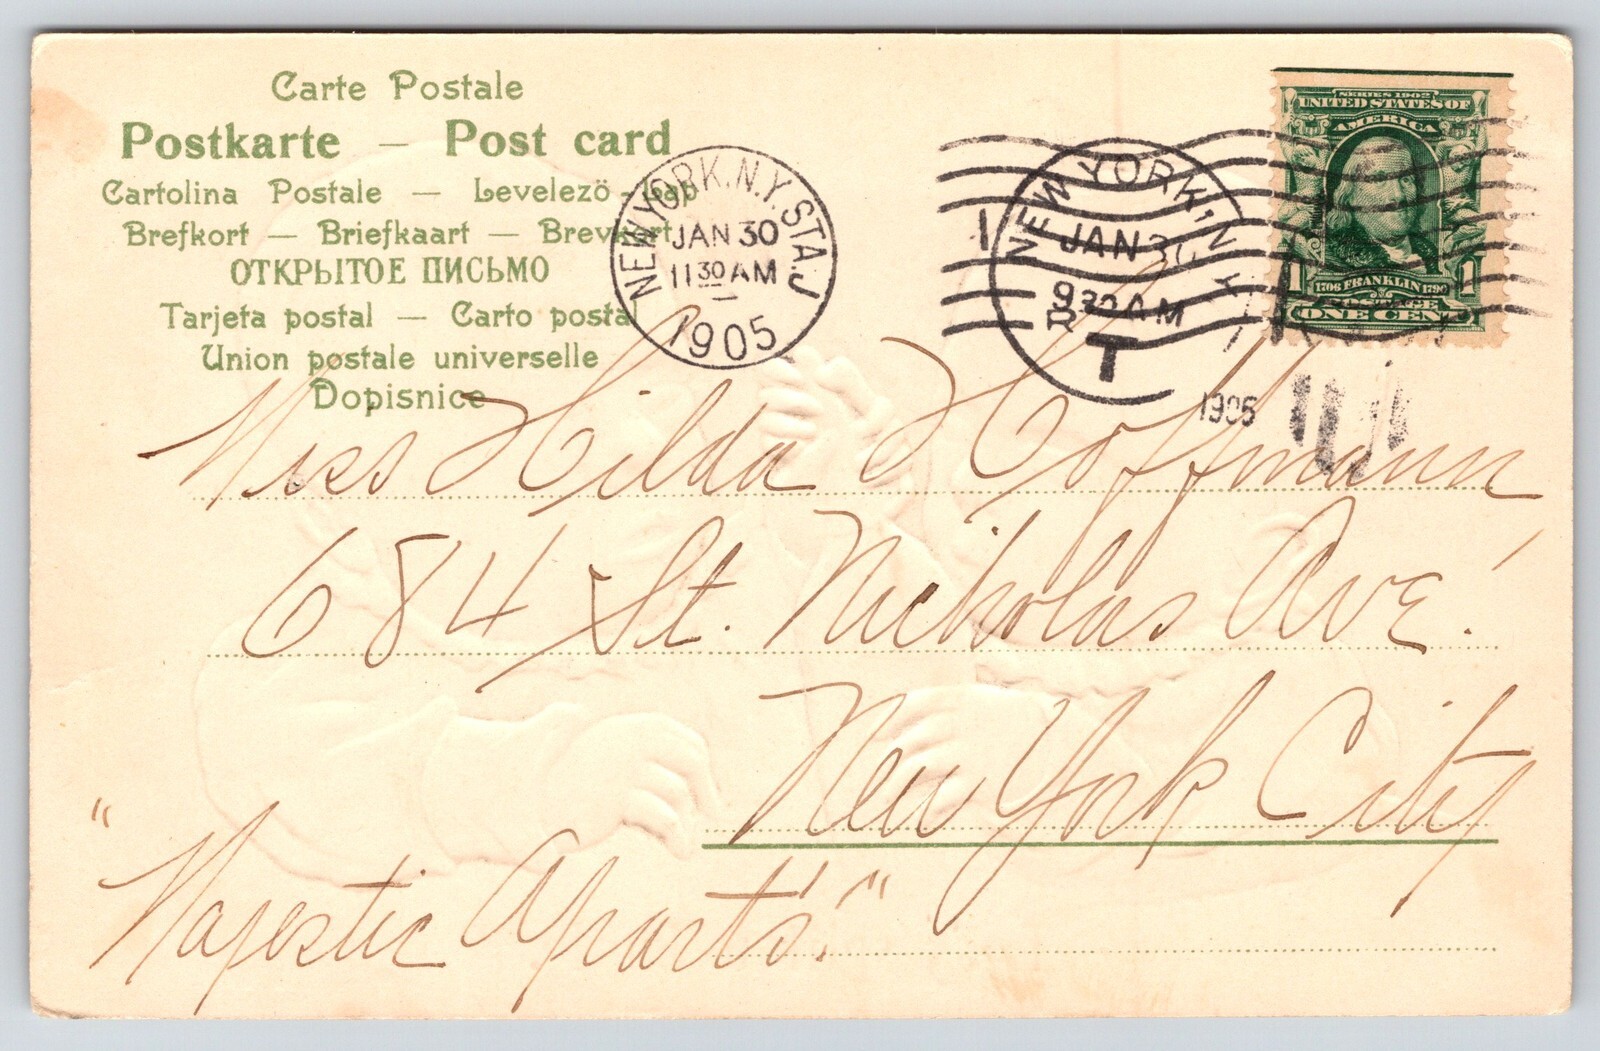 Carte Postale
Postkarte — Post card
Cartolina Postale — Levelező-Lap
Brefkort — Briefkaart — Brevkort
ОТКРЫТОЕ ПИСЬМО
Tarjeta postal — Carto postal
Union postale universelle
Dopisnice
NEW YORK, N.Y. STA. J
JAN 30
11 30 AM
1905
NEW YORK, N.Y.
JAN 30
9 30 AM
T
1905
SERIES 1902
UNITED STATES OF
AMERICA
1706 FRANKLIN 1790
POSTAGE
1 1
ONE CENT
Miss Hilda Hoffmann
684 St. Nicholas Ave.
New York City
"Majestic Aparts."